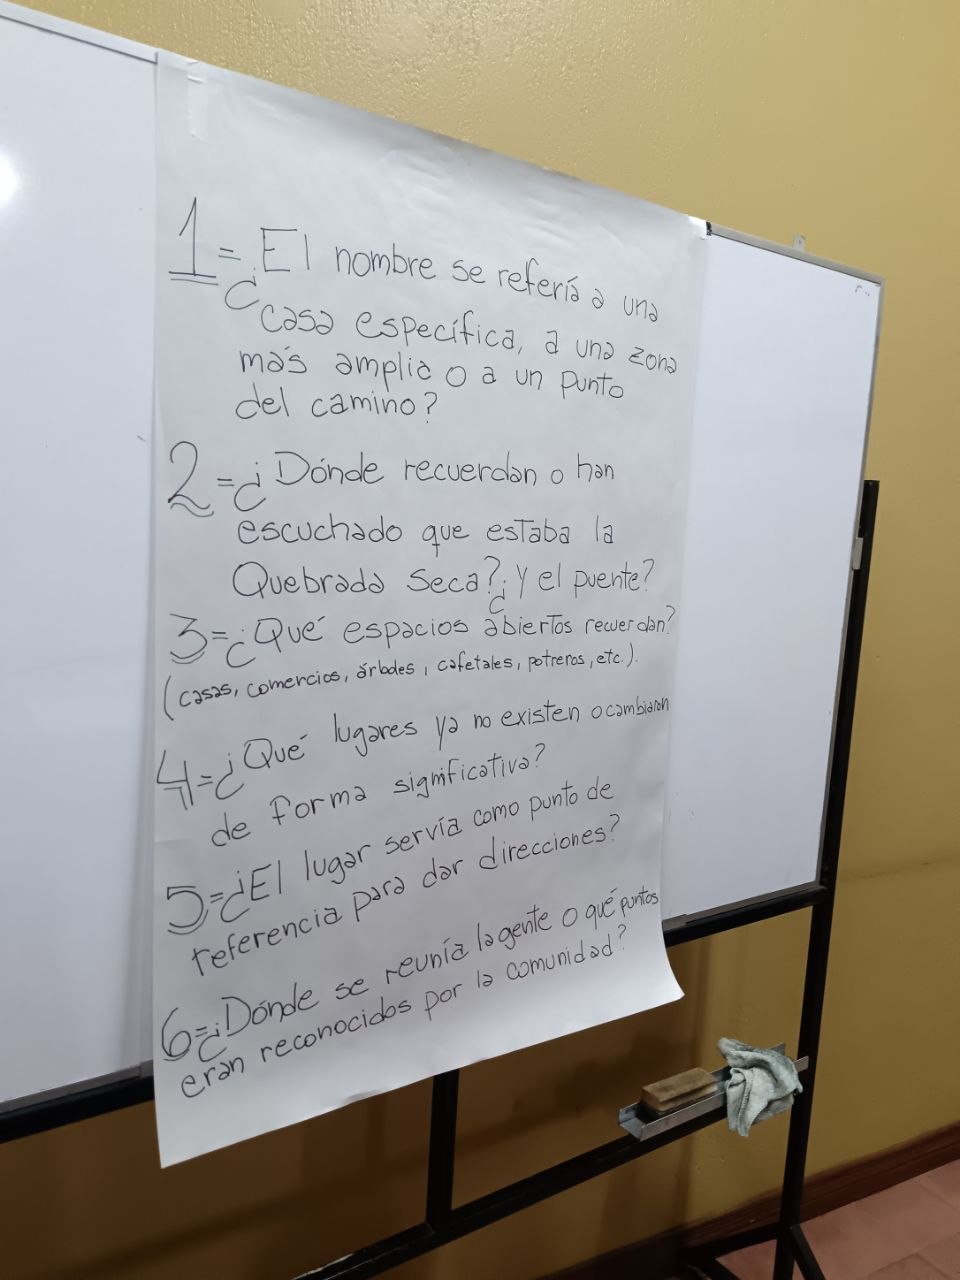 1=¿El nombre se refería a una
casa específica, a una zona
más amplia o a un punto
del camino?
2=¿Dónde recuerdan o han
escuchado que estaba la
Quebrada Seca?¿Y el puente?
3=¿Qué espacios abiertos recuerdan?
(casas, comercios, árboles, cafetales, potreros, etc.).
4=¿Qué lugares ya no existen o cambiaron
de forma significativa?
5=¿El lugar servía como punto de
referencia para dar direcciones?
6=¿Dónde se reunía la gente o qué puntos
eran reconocidos por la comunidad?